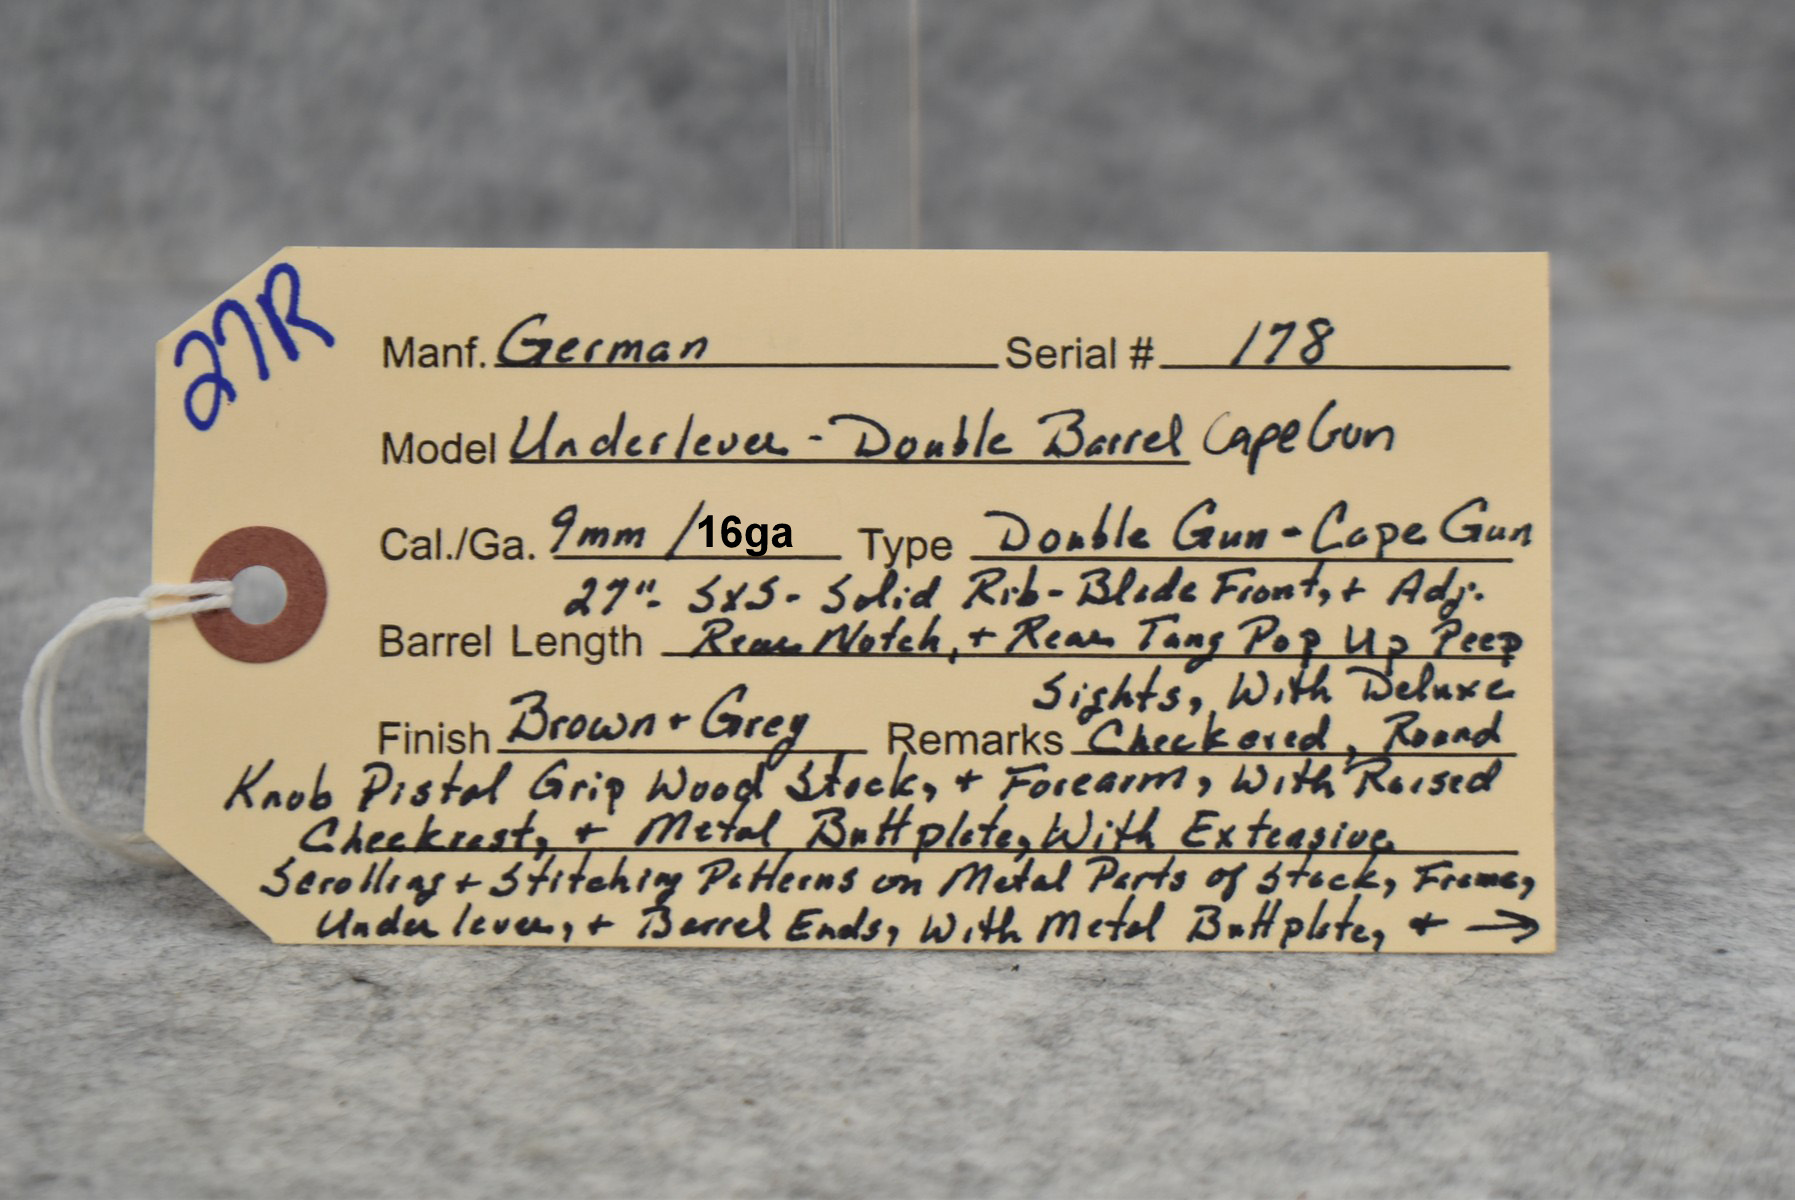 27R
Manf. German Serial # 178
Model Underlever - Double Barrel Cape Gun
Cal./Ga. 9mm / 16ga Type Double Gun - Cape Gun
27"- SxS- Solid Rib- Blade Front, + Adj.
Barrel Length Rear Notch, + Rear Tang Pop Up Peep
Sights, With Deluxe
Finish Brown + Grey Remarks Checkered, Round
Knob Pistol Grip Wood Stock, + Forearm, With Raised
Cheekrest, + Metal Buttplate, With Extensive
Scrolling + Stitching Patterns on Metal Parts of Stock, Frame,
Underlever, + Barrel Ends, With Metal Buttplate, + →